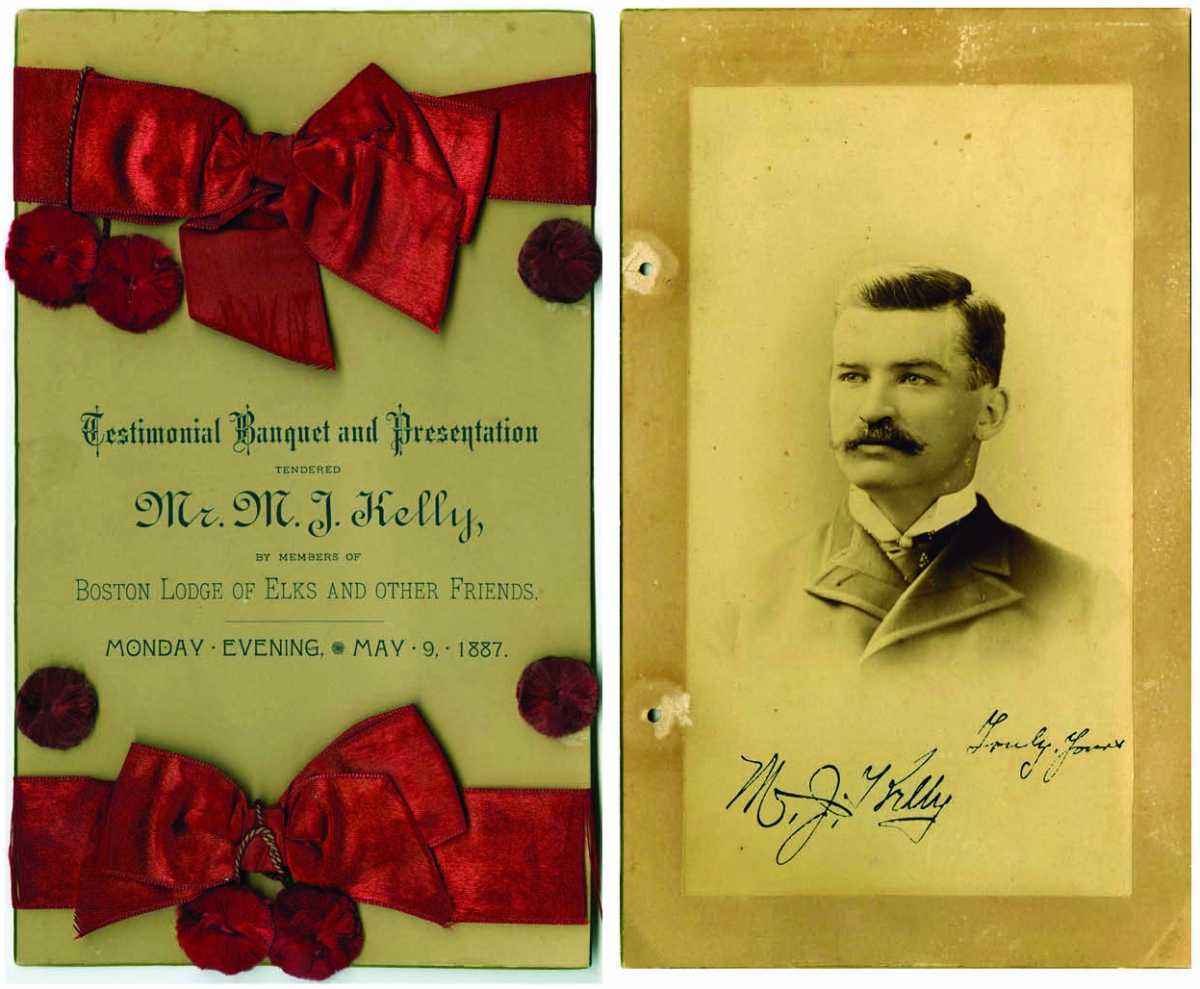 Testimonial Banquet and Presentation
TENDERED
Mr. M. J. Kelly,
BY MEMBERS OF
BOSTON LODGE OF ELKS AND OTHER FRIENDS.
MONDAY · EVENING, ❋ MAY · 9, · 1887.
Truly Yours
M. J. Kelly